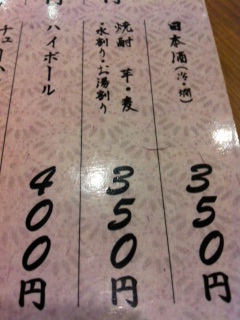 日本酒(冷・燗)
350円
焼酎 芋・麦
・水割り・お湯割り
350円
ハイボール
400円
チュ
円
円